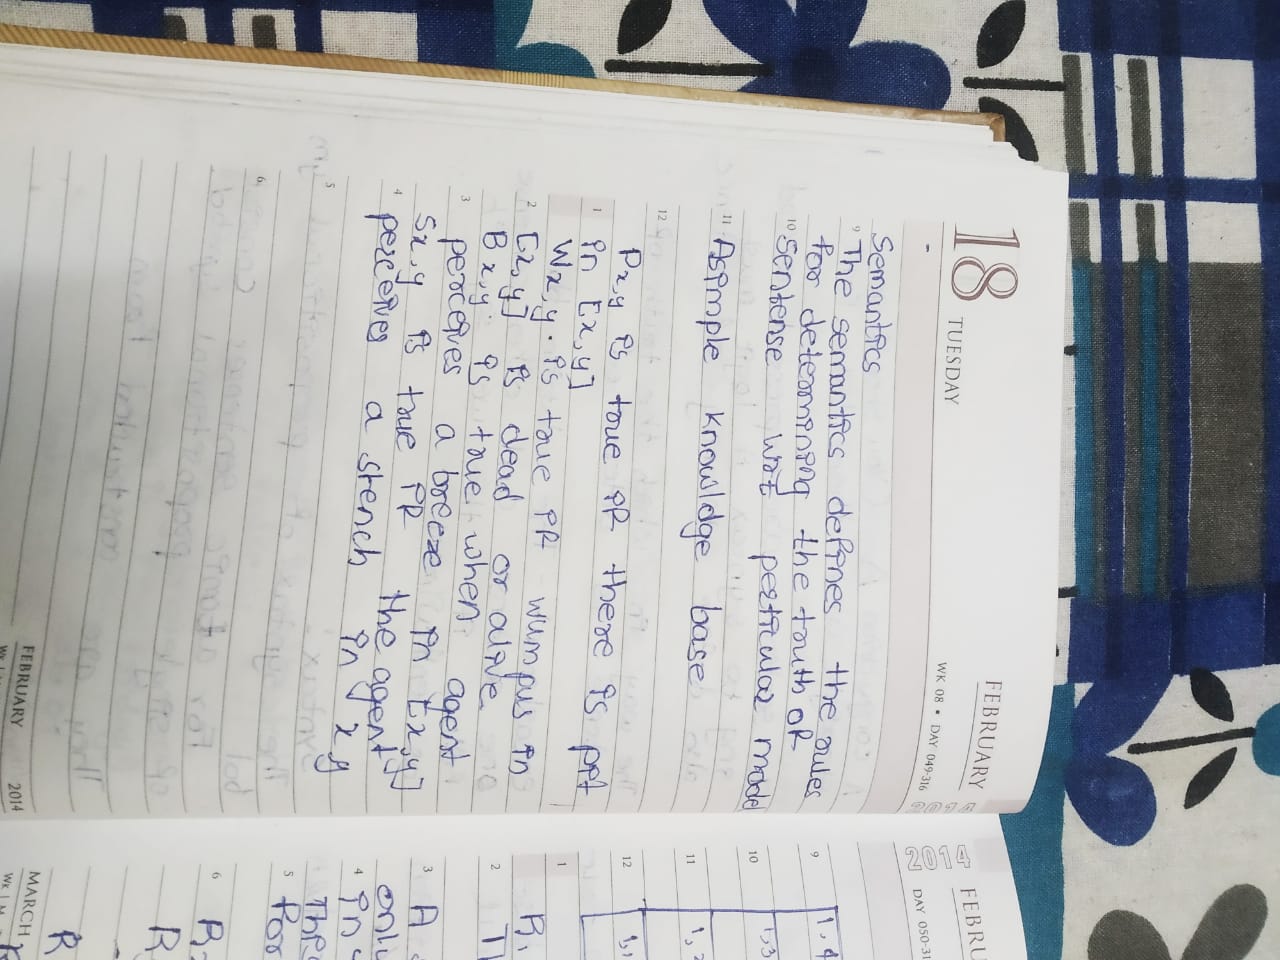 18
TUESDAY
FEBRUARY
WK 08 • DAY 049-316
2014
-
Semantics
9 The semantics defines the rules
for determining the truth of
10 sentense wrt perticular model
11 Asimple knowldge base
12
Px,y is true if there is pit
1 in [x,y]
Wx,y. is true if wumpus in
2 [x,y] is dead or alive
Bx,y. is true when agent
3 perceives a breeze in [x,y]
Sx,y is true if the agent
4 perceives a stench in x y
5
6
FEBRUARY 2014
2014
FEBRU
DAY 050-31
9 1,4
10 1,3
11 1,2
12 1,1
1
R1
2
3 A
only
4 in
5 for
6
R
R
MARCH